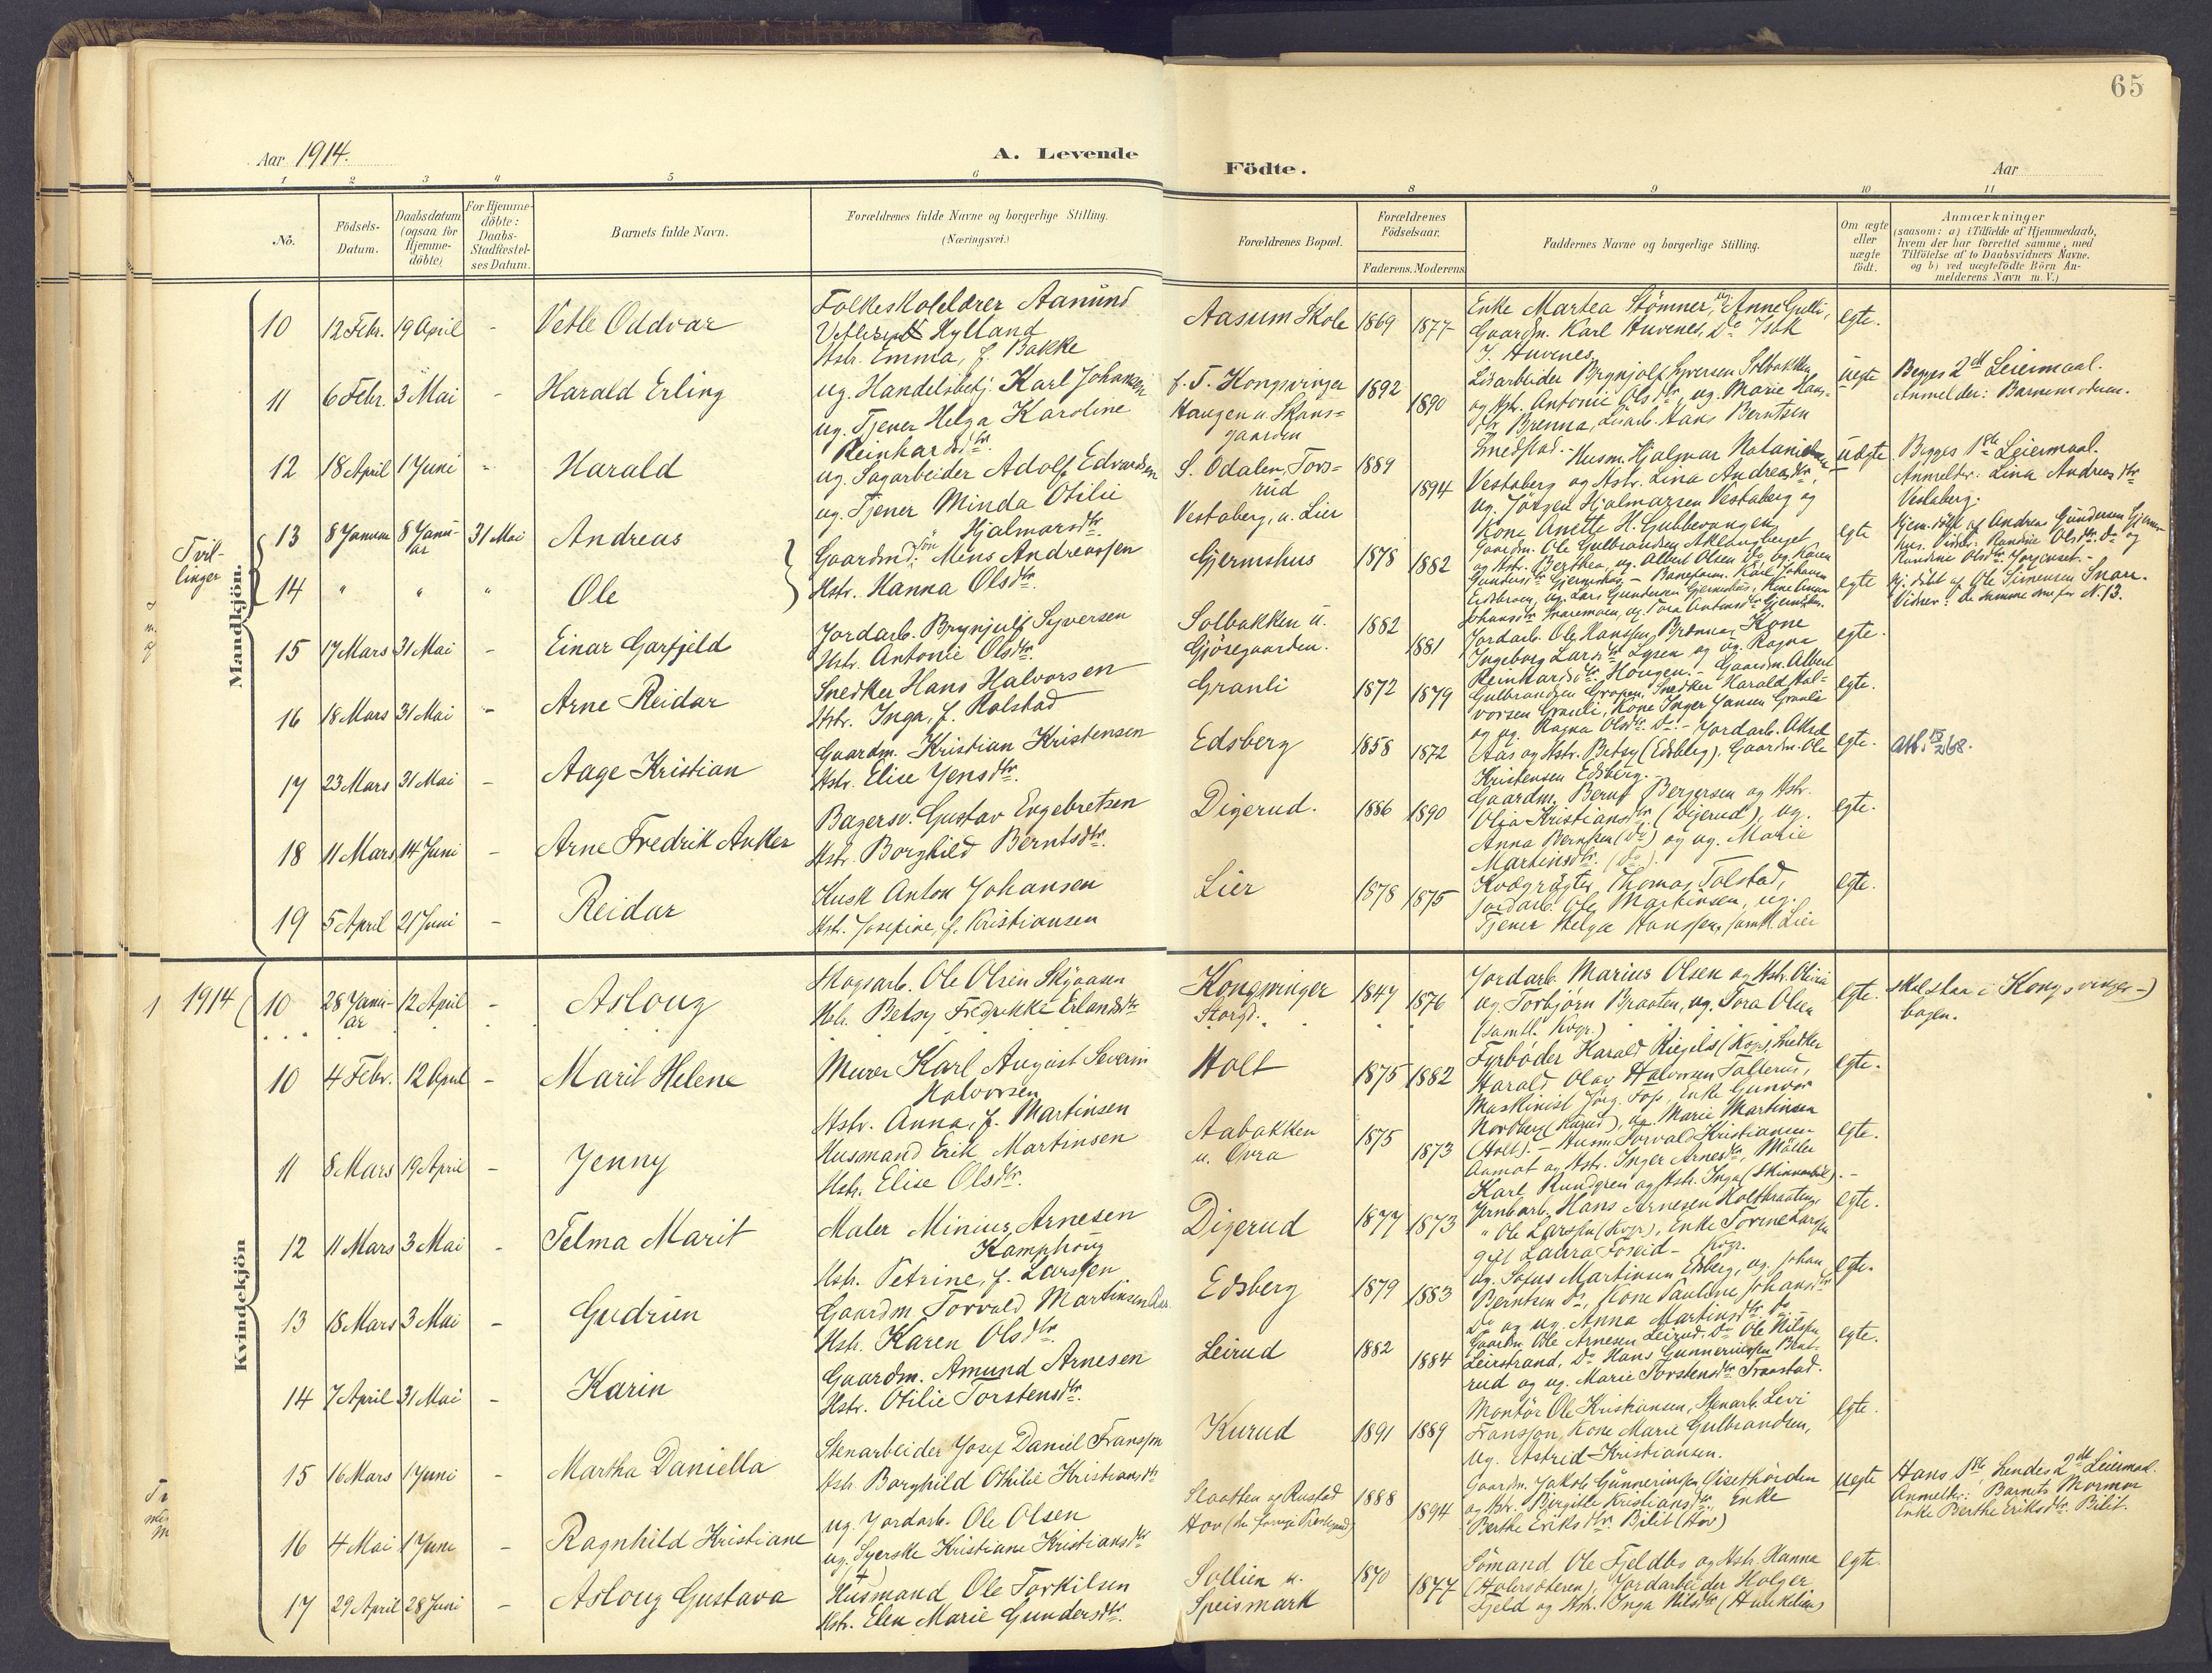 65
Aar 1914.
A. Levende
Födte.
Aar
1 2 3 4 5 6 8 9 10 11
No.
Födsels-Datum.
Daabsdatum (ogsaa for Hjemme-döbte)
For Hjemme-döbte: Daabs-Stadfæstel-ses Datum.
Barnets fulde Navn.
Forældrenes fulde Navne og borgerlige Stilling.
(Næringsvei.)
Forældrenes Bopæl.
Forældrenes Födselsaar.
Faderens. Moderens.
Faddernes Navne og borgerlige Stilling.
Om ægte eller uægte födt.
Anmærkninger
(saasom: a) i Tilfælde af Hjemmedaab, hvem der har forrettet samme, med Tilföielse af to Daabsvidners Navne. og b) ved uægtefödte Börn An-melderens Navn m. V.)
Mandkjön.
10 12 Febr. 19 April - Vetle Oddvar
Folkeskolelærer Aamund
Hylland
Hstr. Emma, f. Bakke
Aasum Skole 1869 1877
Enke Martea Stömner, ug. Anne Gulli,
Gaardm. Karl Huvenes, Do
J. Huvenes.
egte.
11 6 Febr. 3 Mai - Harald Erling
ug. Handelsbetj. Karl Johansen
ug. Tjener Helga Karoline
Reinhardsdtr.
f. T. Kongsvinger
Haugen u. Skans=
gaarden
1892 1890
Lösarbeider Brynjolf Syversen Solbakken
og Hstr. Antonie Olsdtr, ug. Marie Hans-
dtr Brenna, Lösarb. Hans Berntsen
Smedstad.
uegte
Begges 2det Leiermaal.
Anmelder: Barnemoderen.
12 18 April 1 Juni - Harald
ug. Sagarbeider Adolf Edvardsen
ug. Tjener Minda Otilie
Hjalmarsdtr.
S. Odalen, Tors=
rud
Vestaberg, u. Lier
1889 1894
Husm. Hjalmar Natanielsen
Vestaberg og Hstr. Lina Andreasdtr,
ug. Jörgen Hjalmarsen Vestaberg og
Kone Anette H. Gubbevangen
uegte
Begges 1ste Leiermaal.
Anmelder: Lina Andreasdtr
Vestaberg.
Tvil-
linger
13 8 Januar 8 Janu-
ar 31 Mai Andreas
Gaardmd. Mens Andreassen
Hstr. Hanna Olsdtr.
Gjermshus 1878 1882
egte
14 " " " Ole
egte
Vidner: de samme som for N. 13.
15 17 Mars 31 Mai - Einar Garfjeld
Jordarb. Brynjulf Syversen
Hstr. Antonie Olsdtr.
Solbakken u.
Gjösegaarden.
1882 1881
Jordarb. Ole Hanssen Brenna, Kone
Ingeborg Larsdtr Lysen og ug. Ragna
Reinhardsdtr Hougen.
egte.
16 18 Mars 31 Mai - Arne Reidar
Snedker Hans Halvorsen
Hstr. Inga, f. Rolstad
Granli 1872 1879
Gaardm. Albert
Gulbrandsen Gropen, Snedker Harald Hal-
vorsen Granli, Kone Inger Jansen Granli
og ug. Ragna Olsdtr Do.
egte.
17 23 Mars 31 Mai - Aage Kristian
Gaardm. Kristian Kristensen
Hstr. Elise Jensdtr.
Edsberg 1858 1872
Jordarb. Aksel
Aas og Hstr. Betsy (Edsberg). Gaardm. Ole
Kristensen Edsberg.
egte.
att. 15/2 68.
18 11 Mars 14 Juni - Arne Fredrik Anker
Bagersv. Gustav Engebretsen
Hstr. Borghild Berntsdtr.
Digerud. 1886 1890
Gaardm. Bernt Bergersen og Hstr.
Olia Kristiansdtr (Digerud), ug.
Anna Berntsen (Do) og ug. Marie
Martinsdtr. (Do).
egte.
19 5 April 21 Juni - Reidar
Kusk Anton Johansen
Hstr. Josefine, f. Kristiansen
Lier 1878 1875
Kvægrögter Thomas Tolstad,
Jordarb. Ole Martinsen, ug.
Tjener Helga Hanssen, samtl. Lier
egte.
1914
Kvindekjön
10 28 Janu-
ar 12 April - Asloug
Skogsarb. Ole Olsen Skyaasen
Hstr. Betsy Fredrikke Erlandsdtr
Kongsvinger
Storgd.
1847 1876
Jordarb. Marius Olsen og Hstr. Olivia
ug. Torbjörn Braaten, ug. Tora Olsen
(samtl. Kvgr.)
egte.
skal staa i Kongsvinger-
bogen.
10 4 Febr. 12 April - Marit Helene
Murer Karl August Severin
Halvorsen
Hstr. Anna, f. Martinsen
Holt 1875 1882
Fyrböder Harald Riegels (Kvgr), Snedker
Harald Olav Halvorsen Tolterud,
Maskinist Jörg. Fos, Enke Gunvor
Nordberg (Kurud), ug. Marie Martinsen
(Holt).
egte.
11 8 Mars 19 April - Jenny
Husmand Erik Martinsen
Hstr. Elise Olsdtr.
Aabakken
u. Øvra
1875 1873
Husm. Torvald Kristiansen
Aamot og Hstr. Inger Arnesdtr, Möller
Karl Rundgren og Hstr. Inga (Skinnarbøl).
egte.
12 11 Mars 3 Mai - Telma Marit
Maler Minius Arnesen
Kamphoug
Hstr. Petrine, f. Larssen
Digerud 1877 1873
Jernbarb. Hans Arnesen Holtbraaten,
" Ole Larssen (Kvgr), Enke Torine Larssen
gift Laura Foseid - Kvgr.
egte.
13 18 Mars 3 Mai - Gudrun
Gaardm. Torvald Martinsen
Hstr. Karen Olsdtr.
Edsberg 1879 1883
ug. Sofus Martinsen Edsberg, ug. Johan
Berntsen Do, Kone Pauline Johansdtr
Do og ug. Anna Martinsdtr Do.
egte.
14 7 April 31 Mai - Karin
Gaardm. Amund Arnesen
Hstr. Otilie Torstensdtr.
Leirud 1882 1884
Gaardm. Ole Arnesen Leirud. Do Ole Nilssen
Leirstrand, Do Hans Gunneriussen Bent-
rud og ug. Marie Torstensdtr Traastad.
egte.
15 16 Mars 1 Juni - Martha Daniella
Stenarbeider Josef Daniel Fransson
Hstr. Borghild Othilie Kristiansdtr
Kurud 1891 1889
Montör Ole Kristiansen, Stenarb. Levi
Fransson, Kone Marie Gulbrandsen,
ug. Astrid Kristiansen.
egte.
16 4 Mai 1 Juni - Ragnhild Kristiane
ug. Jordarb. Ole Olsen
ug. Syerske Kristiane Kristiansdtr
Slaatten og Rustad
1888 1894
Gaardm. Jakob Gunneriussen
og Hstr. Birgitte Kristiansdtr, Enke
Berthe Eriksdtr. Bilit (Hov)
uegte
Hans 1ste, hendes 2det Leiermaal.
Anmelder: Barnets Mormor
Enke Berthe Eriksdtr. Bilit.
17 29 April 28 Juni - Asloug Gustava
Husmand Ole Torkilsen
Hstr. Elen Marie Gundersdtr.
Sollien u.
Speismark
1870 1877
Sömand Ole Fjeldbo og Hstr. Hanna
Jordarbeider Holger
Fjeld og Hstr. Inga Nilsdtr
egte.